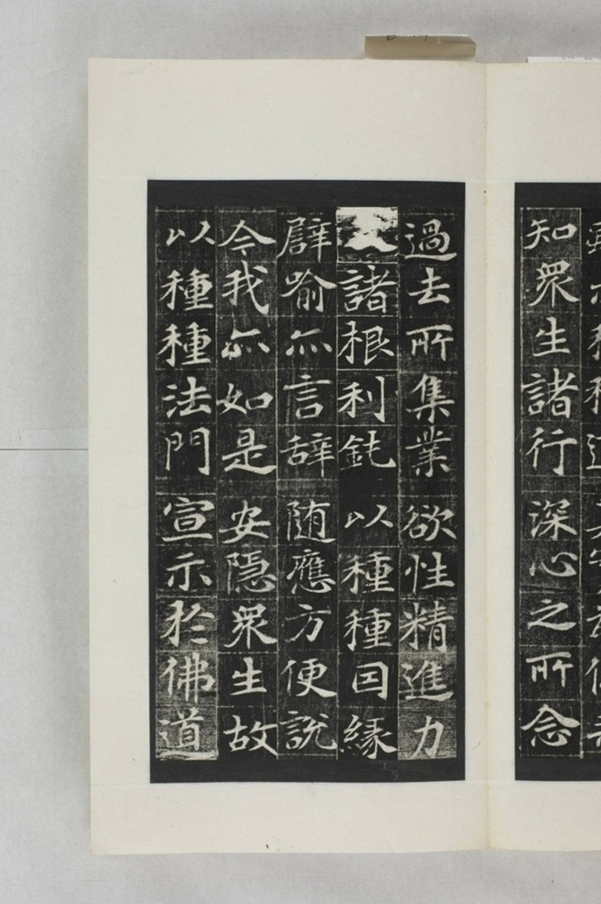 知衆生諸行深心之所念
過去所集業欲性精進力
諸根利鈍以種種因縁
譬喻亦言辞随應方便說
今我亦如是安隐衆生故
以種種法門宣示於佛道